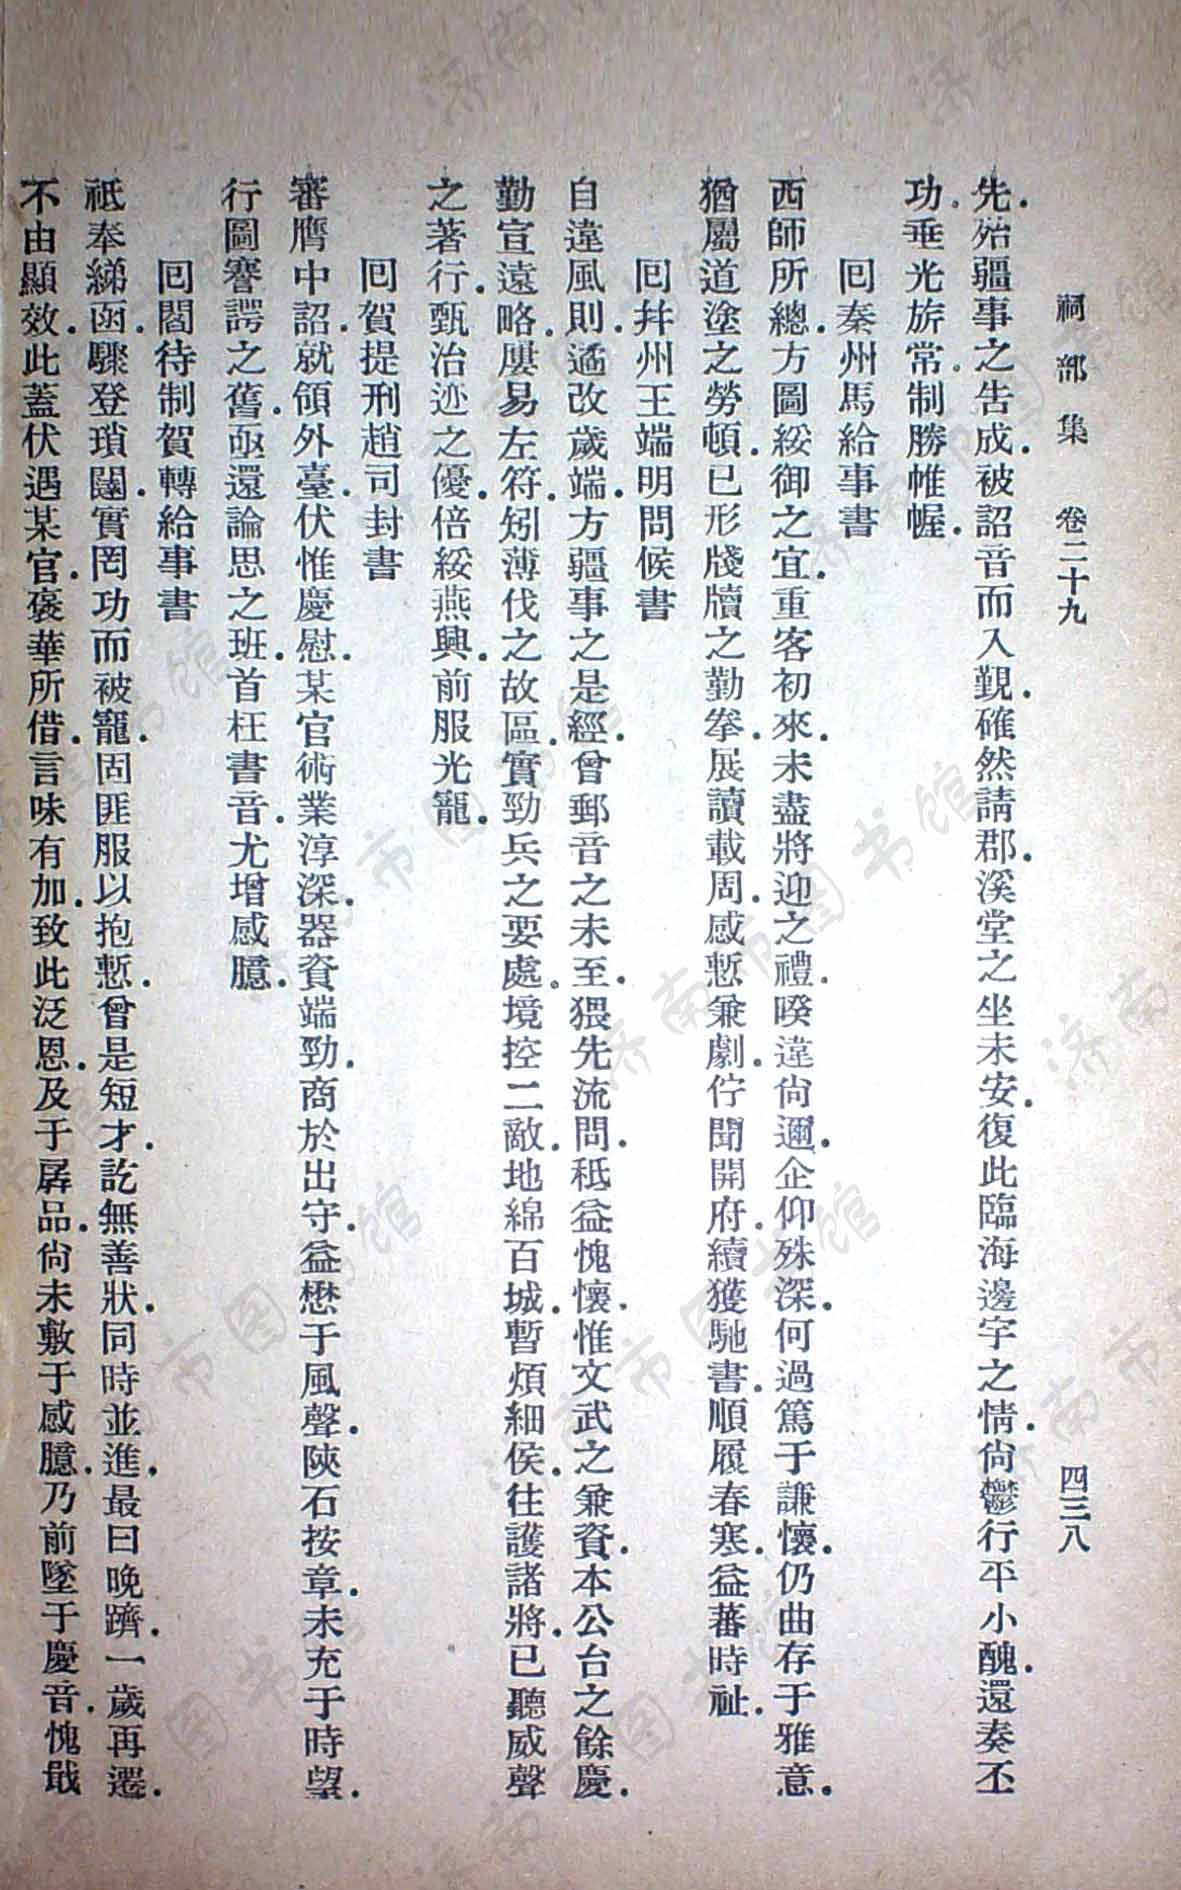 祠部集 卷二十九 四三八
先．殆疆事之告成．被詔音而入覲．確然請郡．溪堂之坐未安．復此臨海邊宇之情．尙鬱行平小醜．還奏丕
功．垂光旂常．制勝帷幄．
囘秦州馬給事書
西師所總．方圖綏御之宜．重客初來．未盡將迎之禮．暌違尙邇．企仰殊深．何過篤于謙懷．仍曲存于雅意．
猶屬道塗之勞頓．已形牋牘之勤拳．展讀載周．感慙兼劇．佇聞開府．續獲馳書．順履春寒．益蕃時祉．
囘幷州王端明問候書
自違風則．遹改歲端．方疆事之是經．曾郵音之未至．猥先流問．秪益愧懷．惟文武之兼資．本公台之餘慶．
勤宣遠略．屢易左符．矧薄伐之故區．實勁兵之要處．境控二敵．地綿百城．暫煩細侯．往護諸將．已聽威聲
之著行．甄治迹之優．倍綏燕興．前服光寵．
囘賀提刑趙司封書
審膺中詔．就領外臺．伏惟慶慰．某官術業淳深．器資端勁．商於出守．益懋于風聲．陝石按章．未充于時望．
行圖謇諤之舊．亟還論思之班．首枉書音．尤增感臆．
囘閻待制賀轉給事書
祗奉綈函．驟登瑣闥．實罔功而被寵．固匪服以抱慙．曾是短才．訖無善狀．同時並進．最曰晩躋．一歲再遷．
不由顯效．此蓋伏遇某官．褒華所借．言味有加．致此泛恩．及于孱品．尙未敷于感臆．乃前墜于慶音．愧戢